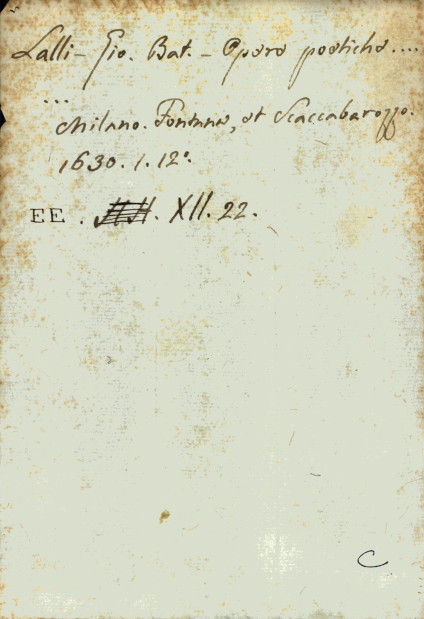 Lalli - Gio. Bat. - Opere poetiche....
...
Milano. Fontana, et Scaccabarozzo.
1630. 1. 12°.
EE. XII. 22.
C